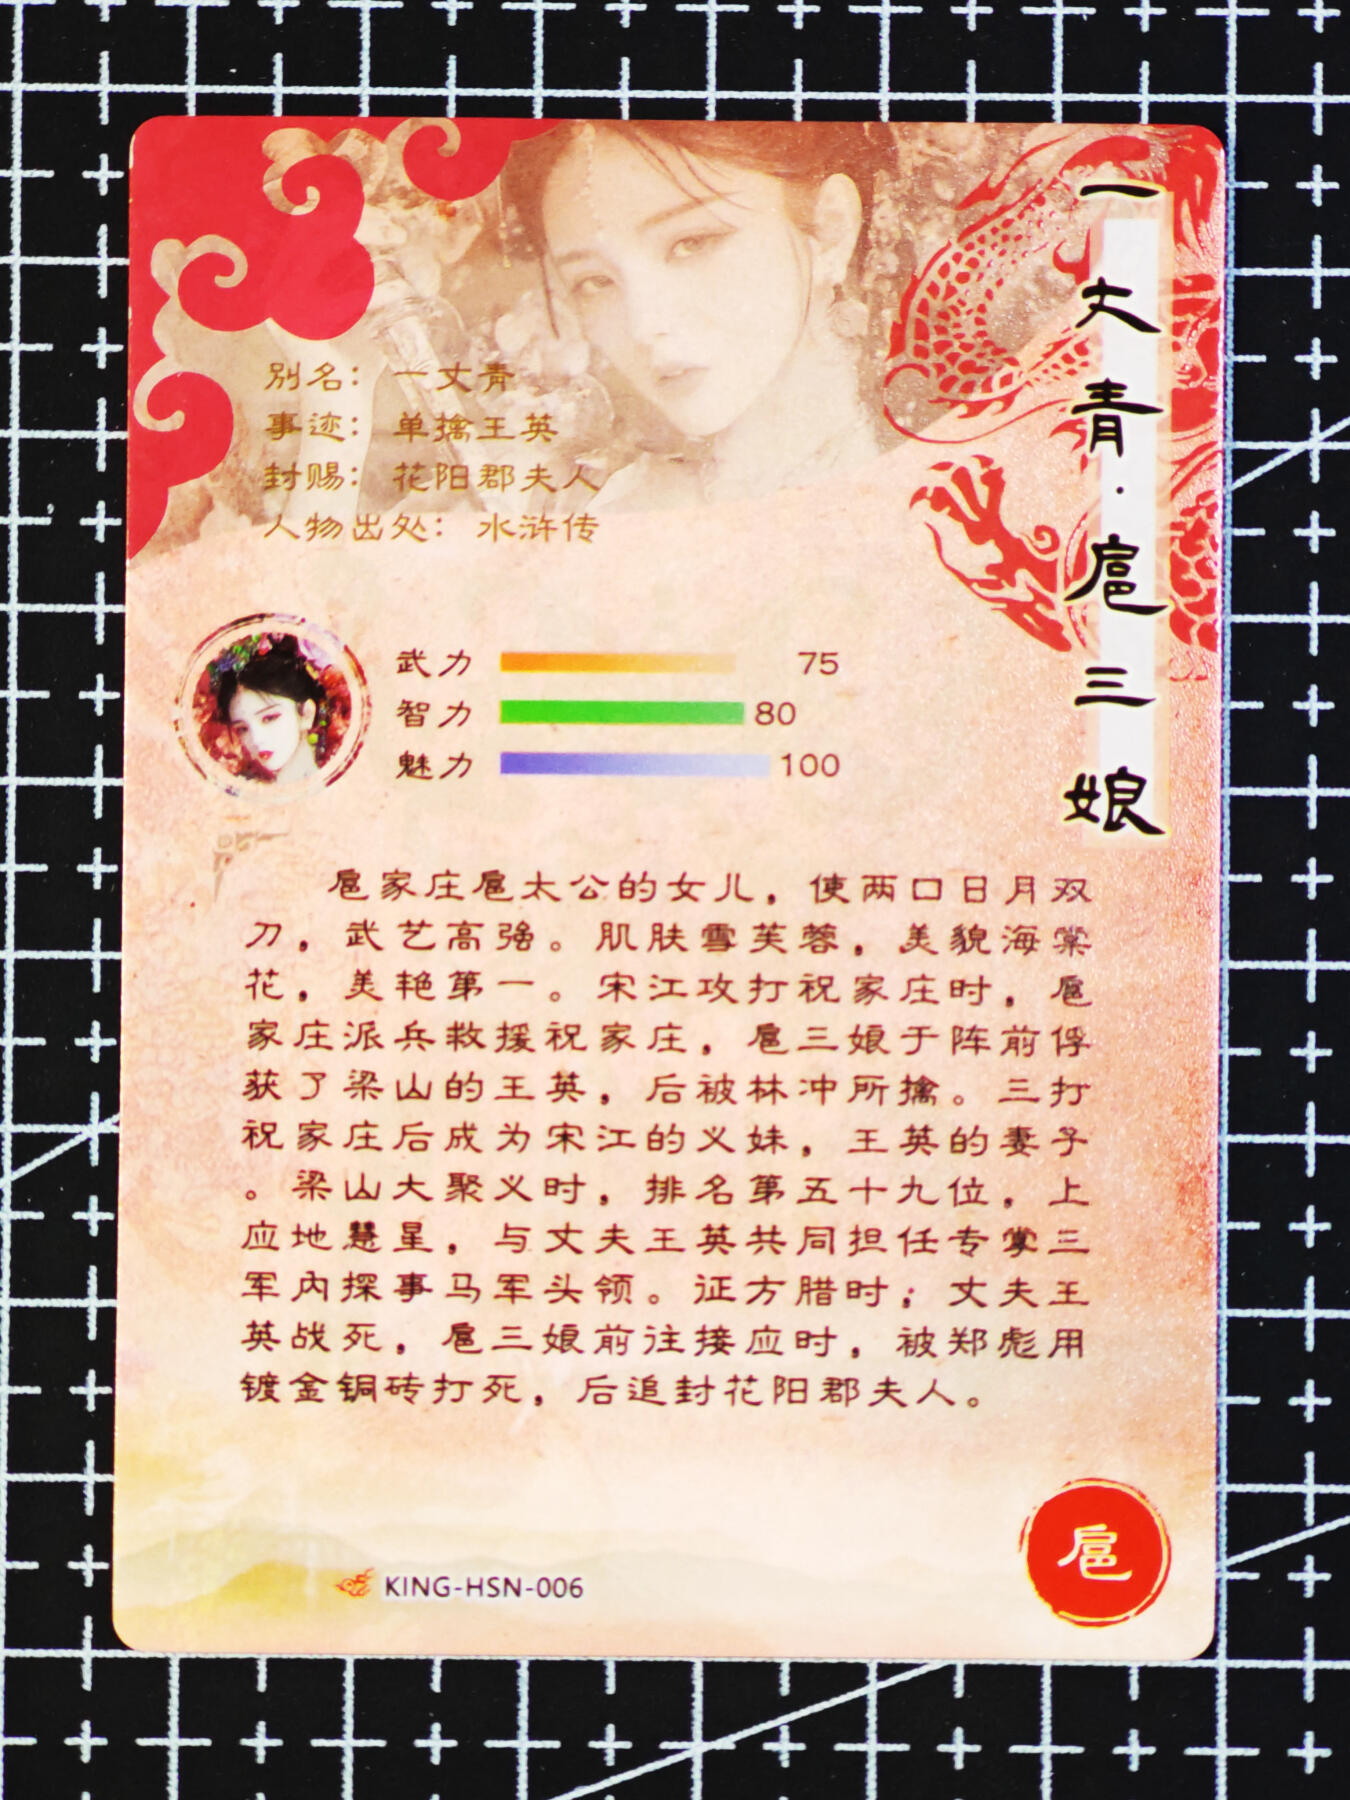 一丈青·扈三娘
别名：一丈青
事迹：单擒王英
封赐：花阳郡夫人
人物出处：水浒传
武力 75
智力 80
魅力 100
扈家庄扈太公的女儿，使两口日月双
刀，武艺高强。肌肤雪芙蓉，美貌海棠
花，美艳第一。宋江攻打祝家庄时，扈
家庄派兵救援祝家庄，扈三娘于阵前俘
获了梁山的王英，后被林冲所擒。三打
祝家庄后成为宋江的义妹，王英的妻子
。梁山大聚义时，排名第五十九位，上
应地慧星，与丈夫王英共同担任专掌三
军内探事马军头领。征方腊时；丈夫王
英战死，扈三娘前往接应时，被郑彪用
镀金铜砖打死，后追封花阳郡夫人。
扈
KING-HSN-006